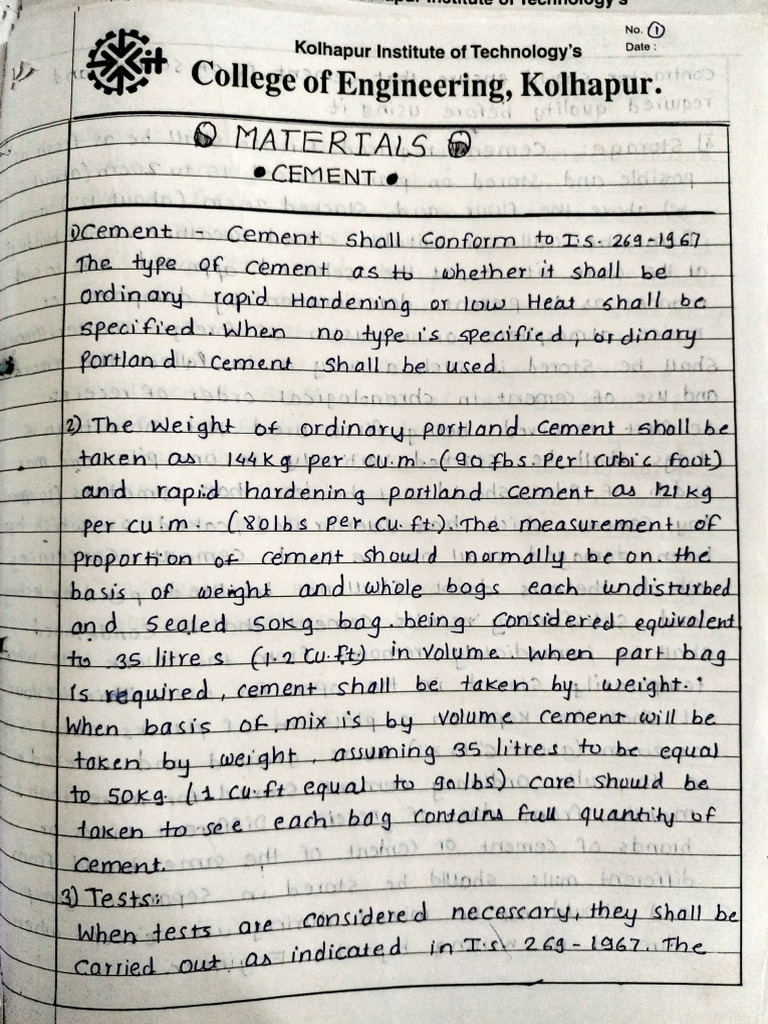 Kolhapur Institute of Technology's
No. 1
Date :
College of Engineering, Kolhapur.
MATERIALS
• CEMENT •
1) Cement - Cement shall conform to I.S. 269-1967
The type of cement as to whether it shall be
ordinary rapid Hardening or low Heat shall be
specified. When no type is specified, ordinary
portland cement shall be used.
2) The weight of ordinary portland cement shall be
taken as 144kg per cu.m (90 fbs. Per cubic foot)
and rapid hardening portland cement as 121 kg
per cu.m. (80lbs per cu.ft). The measurement of
proportion of cement should normally be on the
basis of weight and whole bags each undisturbed
and sealed 50kg bag being considered equivalent
to 35 litres (1.2 cu.ft) in volume. When part bag
is required, cement shall be taken by weight.
When basis of mix is by volume cement will be
taken by weight, assuming 35 litres to be equal
to 50kg. (1 cu.ft equal to 90lbs) care should be
taken to see each bag contains full quantity of
cement.
3) Tests:
When tests are considered necessary, they shall be
carried out as indicated in I.S. 269-1967. The